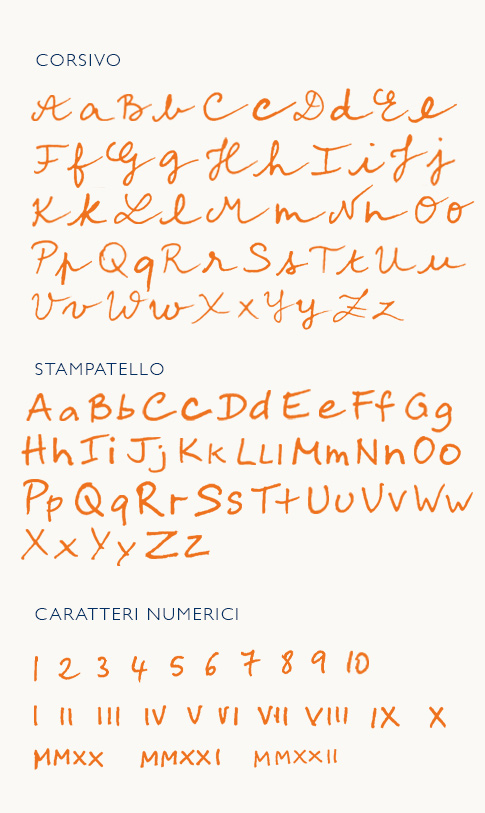 CORSIVO
A a B b C c D d E e
F f G g H h I i J j
K k L l M m N n O o
P p Q q R r S s T t U u
V v W w X x Y y Z z
STAMPATELLO
A a B b C c D d E e F f G g
H h I i J j K k L L l M m N n O o
P p Q q R r S s T t U u V v W w
X x Y y Z z
CARATTERI NUMERICI
1 2 3 4 5 6 7 8 9 10
I II III IV V VI VII VIII IX X
MMXX MMXXI MMXXII